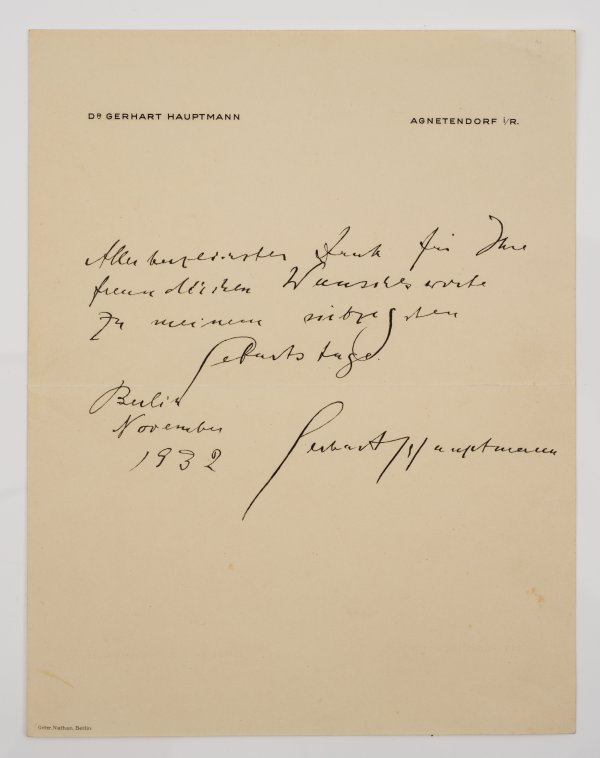 DR GERHART HAUPTMANN
AGNETENDORF i/R.
Allerherzlichsten Dank für Ihre
freundlichen Wunschesworte
zu meinem siebzigsten
Geburtstage.
Berlin
November
1932
Gerhart Hauptmann
Gebr. Nathan, Berlin